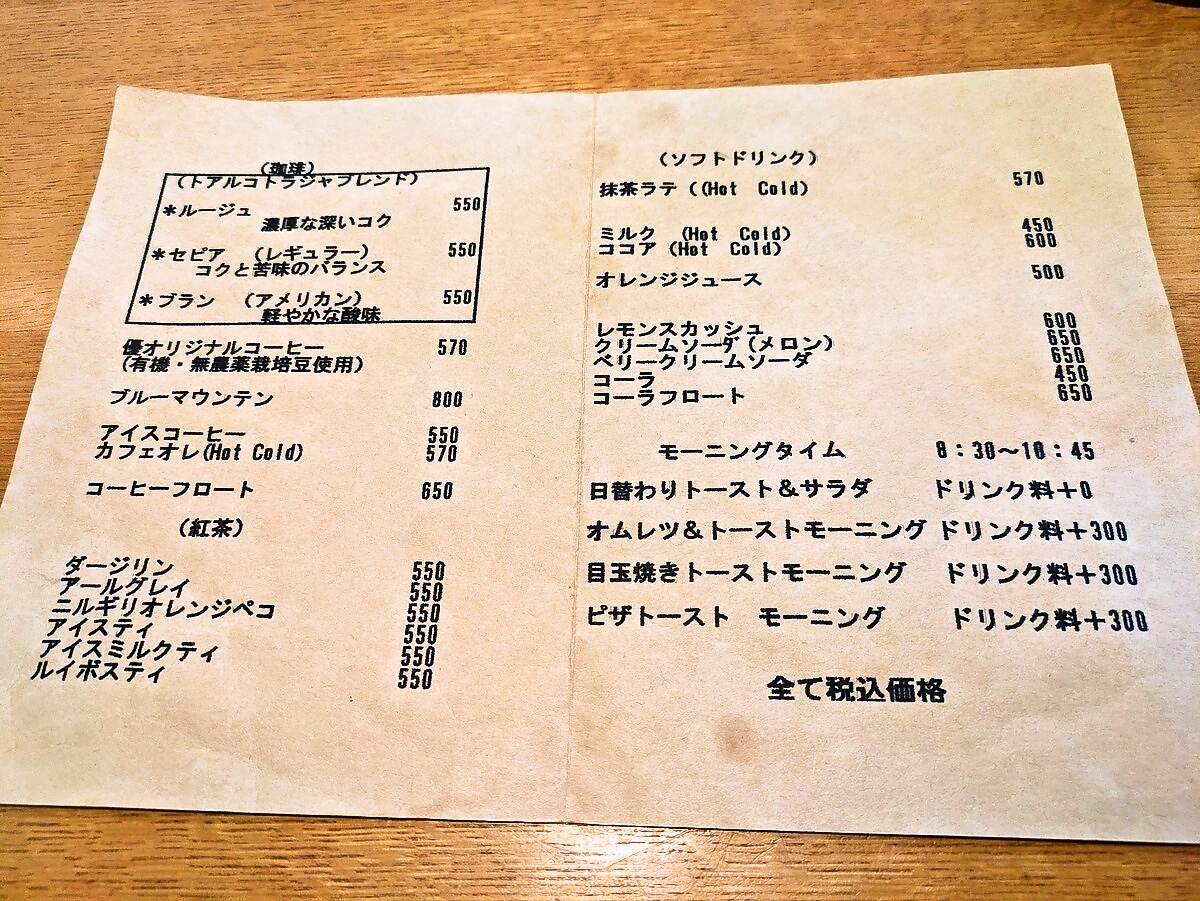 (珈琲)
(トアルコトラジャブレンド)
*ルージュ 550
濃厚な深いコク
*セピア (レギュラー) 550
コクと苦味のバランス
*ブラン (アメリカン) 550
軽やかな酸味
優オリジナルコーヒー 570
(有機・無農薬栽培豆使用)
ブルーマウンテン 800
アイスコーヒー 550
カフェオレ(Hot Cold) 570
コーヒーフロート 650
(紅茶)
ダージリン 550
アールグレイ 550
ニルギリオレンジペコ 550
アイスティ 550
アイスミルクティ 550
ルイボスティ 550
(ソフトドリンク)
抹茶ラテ ((Hot Cold) 570
ミルク (Hot Cold) 450
ココア (Hot Cold) 600
オレンジジュース 500
レモンスカッシュ 600
クリームソーダ(メロン) 650
ベリークリームソーダ 650
コーラ 450
コーラフロート 650
モーニングタイム 8:30~10:45
日替わりトースト&サラダ ドリンク料+0
オムレツ&トーストモーニング ドリンク料+300
目玉焼きトーストモーニング ドリンク料+300
ピザトースト モーニング ドリンク料+300
全て税込価格